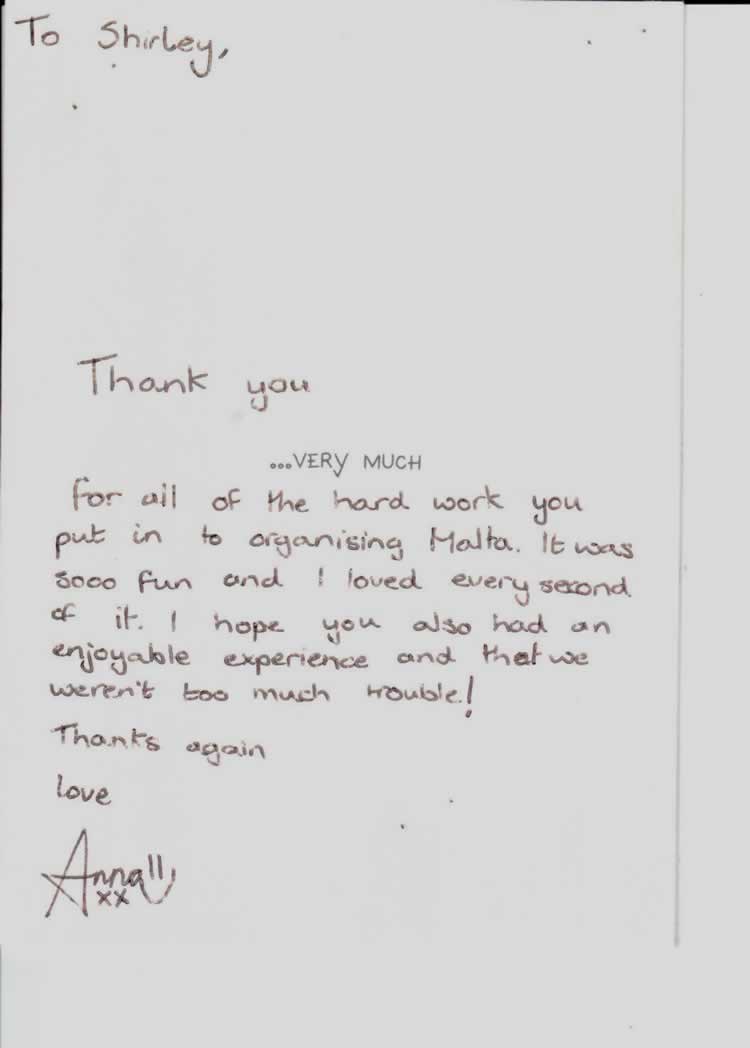 To Shirley,
Thank you
...VERY MUCH
for all of the hard work you
put in to organising Malta. It was
sooo fun and I loved every second
of it. I hope you also had an
enjoyable experience and that we
weren't too much trouble!
Thanks again
love
Anna
xx